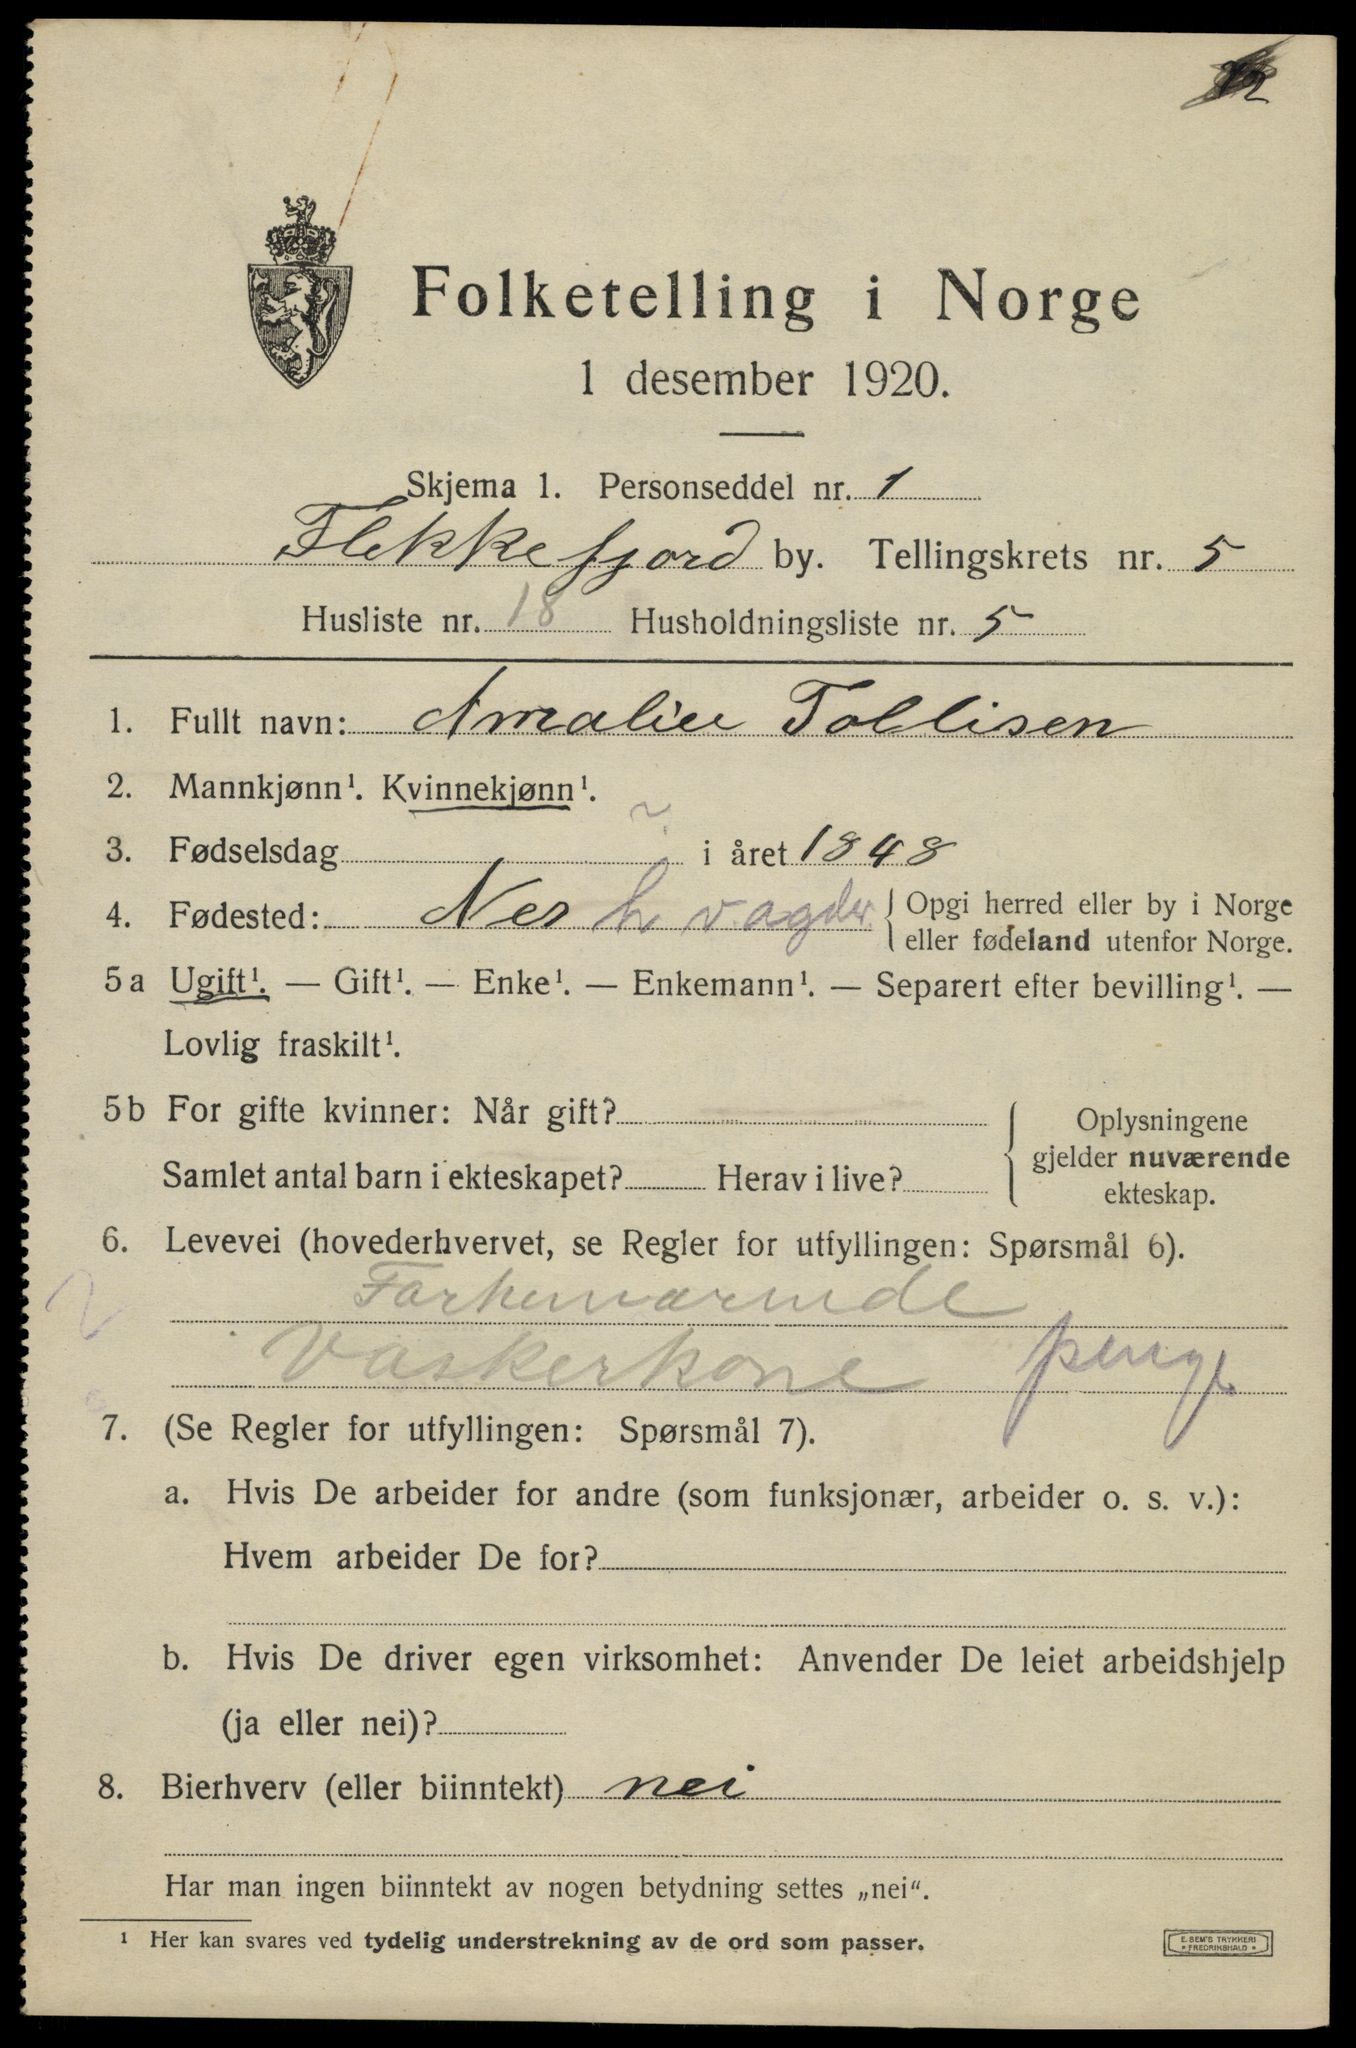 Folketelling i Norge
1 desember 1920.
Skjema 1. Personseddel nr. 1
Flekkefjord by. Tellingskrets nr. 5
Husliste nr. 18 Husholdningsliste nr. 5
1. Fullt navn: Amalie Tollisen
2. Mannkjønn¹. Kvinnekjønn¹.
3. Fødselsdag ? i året 1848
4. Fødested: Nes h v.agder { Opgi herred eller by i Norge
eller fødeland utenfor Norge.
5a Ugift¹. — Gift¹. — Enke¹. — Enkemann¹. — Separert efter bevilling¹. —
Lovlig fraskilt¹.
5b For gifte kvinner: Når gift?
Samlet antal barn i ekteskapet? Herav i live?
Oplysningene
gjelder nuværende
ekteskap.
6. Levevei (hovederhvervet, se Regler for utfyllingen: Spørsmål 6).
Forhenværende
Vaskerkone
7. (Se Regler for utfyllingen: Spørsmål 7).
a. Hvis De arbeider for andre (som funksjonær, arbeider o. s. v.):
Hvem arbeider De for?
b. Hvis De driver egen virksomhet: Anvender De leiet arbeidshjelp
(ja eller nei)?
8. Bierhverv (eller biinntekt) nei
Har man ingen biinntekt av nogen betydning settes „nei“.
¹ Her kan svares ved tydelig understrekning av de ord som passer.
E. SEM'S TRYKKERI
* FREDRIKSHALD *